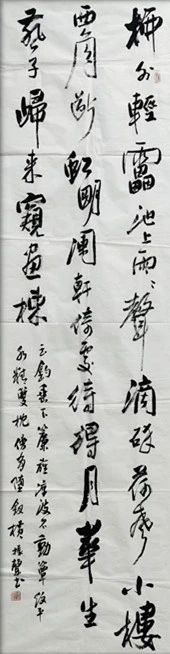 柳外輕靁池上雨〻聲滴碎荷聲小樓
西角斷虹明闌軒倚處待得月華生
燕子歸來窺畫棟
玉鈎垂下簾旌凉波不動簟紋平
水精雙枕傍有墮釵橫